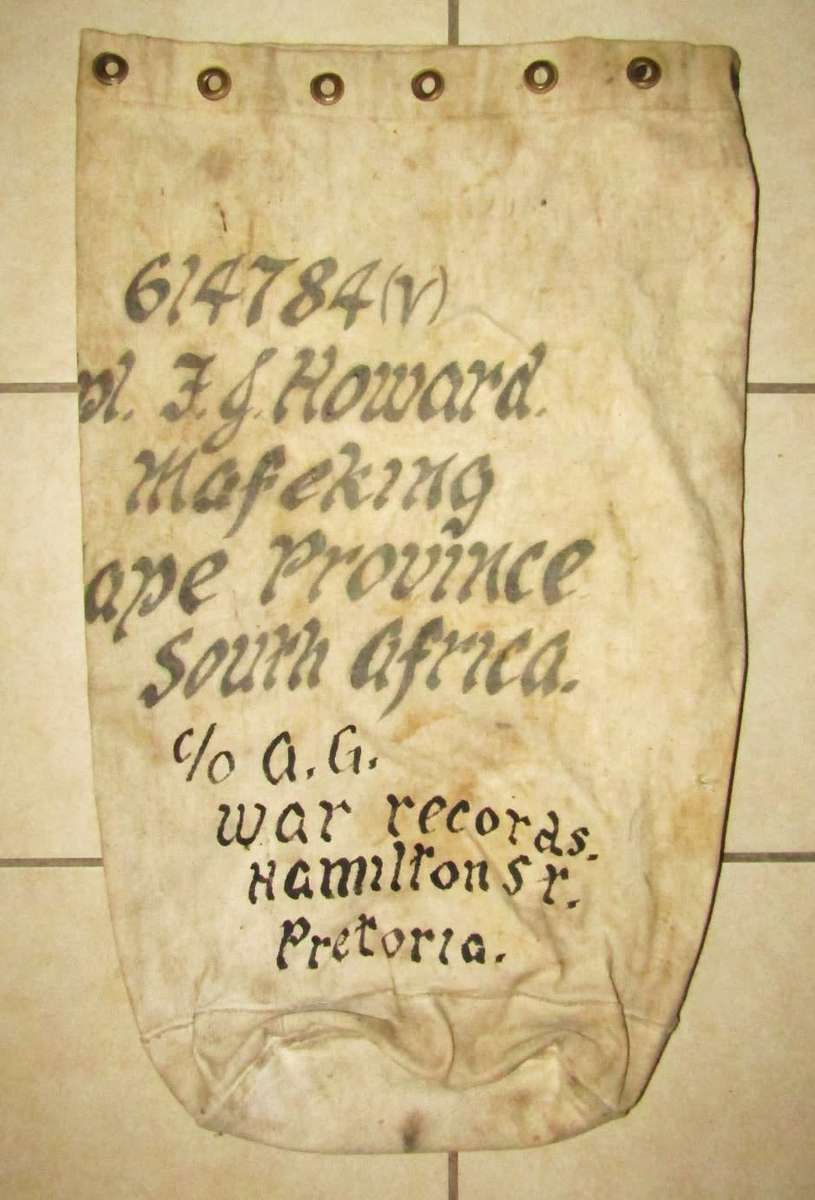 614784(V)
F.J. Howard.
Mafeking
ape Province
South Africa.
c/o A.G.
War records.
Hamilton St.
Pretoria.